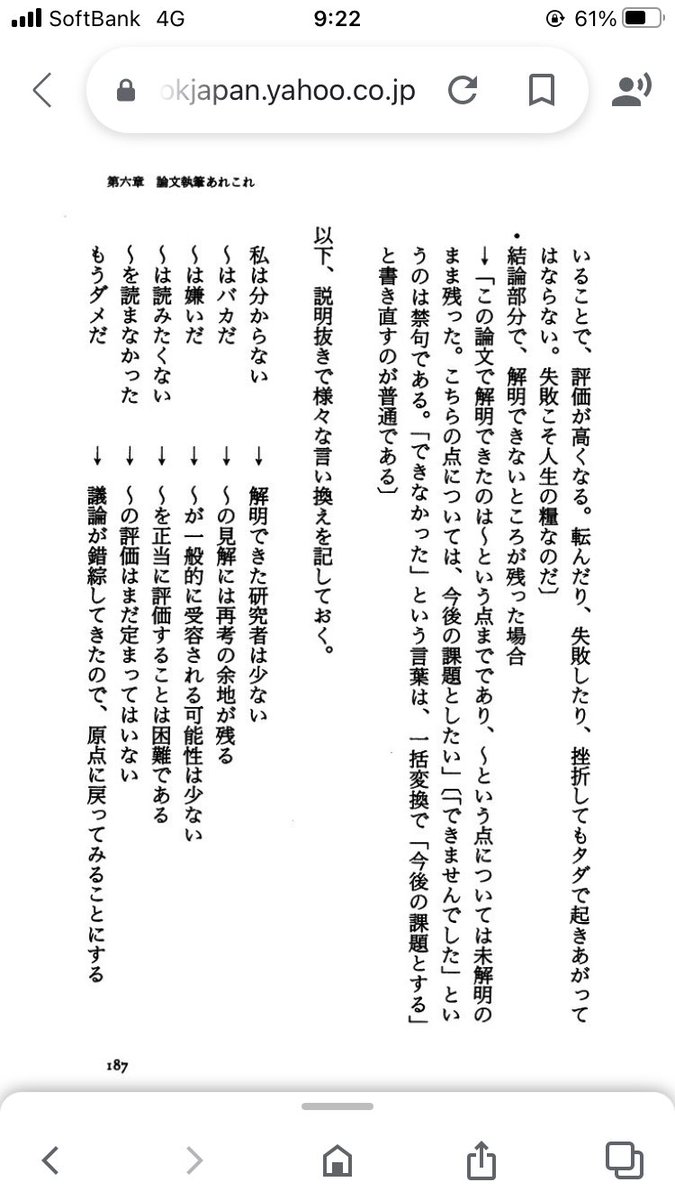 SoftBank 4G 9:22 61%
okjapan.yahoo.co.jp
第六章　論文執筆あれこれ
いることで、評価が高くなる。転んだり、失敗したり、挫折してもタダで起きあがって
はならない。失敗こそ人生の糧なのだ〕
・結論部分で、解明できないところが残った場合
→「この論文で解明できたのは〜という点までであり、〜という点については未解明の
まま残った。こちらの点については、今後の課題としたい」〔「できませんでした」とい
うのは禁句である。「できなかった」という言葉は、一括変換で「今後の課題とする」
と書き直すのが普通である〕
以下、説明抜きで様々な言い換えを記しておく。
私は分からない　→　解明できた研究者は少ない
〜はバカだ　→　〜の見解には再考の余地が残る
〜は嫌いだ　→　〜が一般的に受容される可能性は少ない
〜は読みたくない　→　〜を正当に評価することは困難である
〜を読まなかった　→　〜の評価はまだ定まってはいない
もうダメだ　→　議論が錯綜してきたので、原点に戻ってみることにする
187